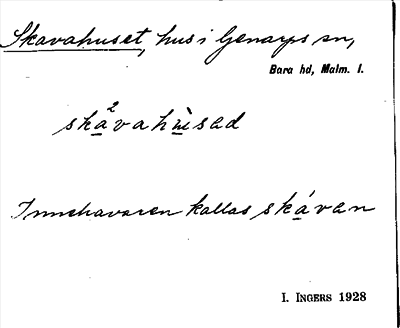 Skavahuset, hus i Genarps sn,
Bara hd, Malm. l.
ska²vahu̇̀sad
Innehavaren kallas skávan
I. INGERS 1928